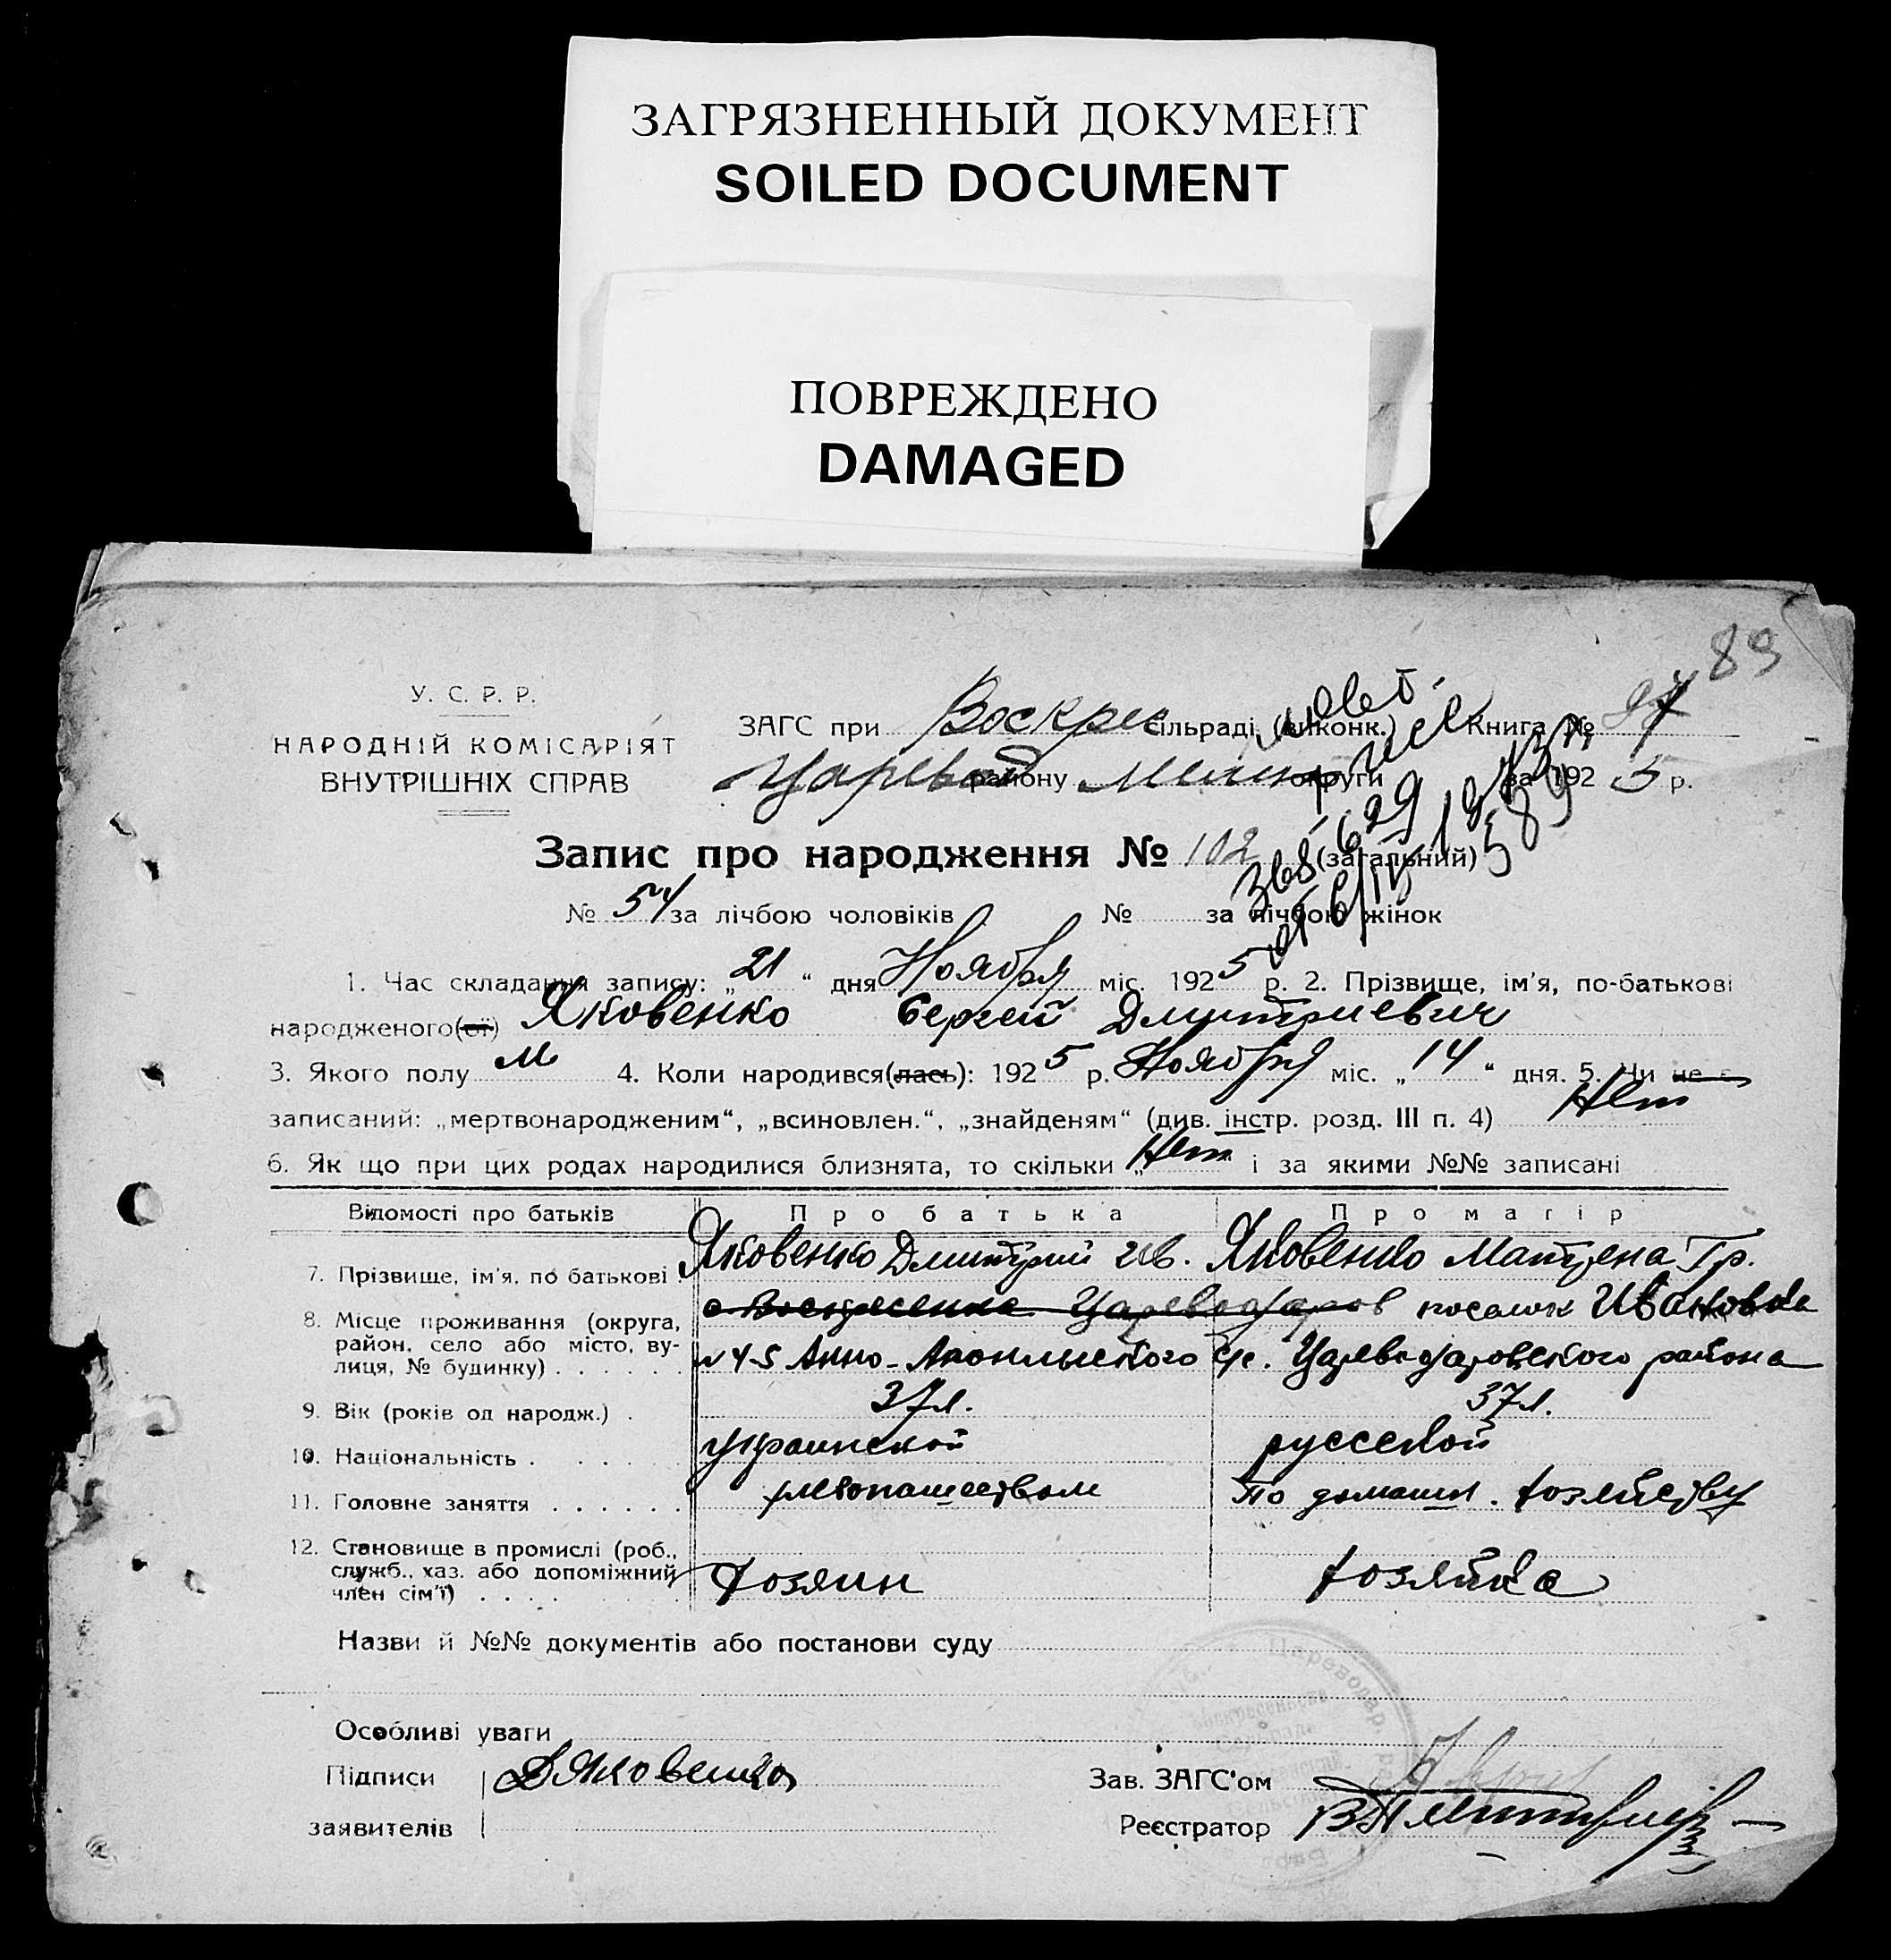 ЗАГРЯЗНЕННЫЙ ДОКУМЕНТ
SOILED DOCUMENT
ПОВРЕЖДЕНО
DAMAGED
89
У. С. Р. Р.
НАРОДНІЙ КОМІСАРІЯТ
ВНУТРІШНІХ СПРАВ
ЗАГС при Воскрес сільраді (виконк.) Книга №
Царевод району округи за 1925 р.
Запис про народження № 102 (загальний)
№ 54 за лічбою чоловіків № за лічбою жінок
1. Час складання запису: „21“ дня Ноября міс. 1925 р. 2. Прізвище, ім'я, по-батькові
народженого(ої) Яковенко Сергей Дмитриевич
3. Якого полу м 4. Коли народився(лась): 1925 р. Ноября міс. „14“ дня. 5. Чи не є
записаний: „мертвонародженим“, „всиновлен.“, „знайденям“ (див. інстр. розд. III п. 4) Нет
6. Як що при цих родах народилися близнята, то скільки „Нет“ і за якими №№ записані
Відомості про батьків Про батька Про матір
7. Прізвище, ім'я, по батькові Яковенко Дмитрий Ив. Яковенко Матрена Гр.
8. Місце проживання (округа, район, село або місто, вулиця, № будинку) с Воскресенка Цареводаров поселок Ивановка
№ 4-5 Анно-Аполинского с/с. Цареводаровского района
9. Вік (років од народж.) 37 л. 37 л.
10. Національність украинской русской
11. Головне заняття хлебопашеством по домашн. хозяйству
12. Становище в промислі (роб., служб., хаз. або допоміжний член сім'ї) хозяин хозяйка
Назви й №№ документів або постанови суду
Особливі уваги
Підписи заявителів Д Яковенко
Зав. ЗАГС'ом
Реєстратор